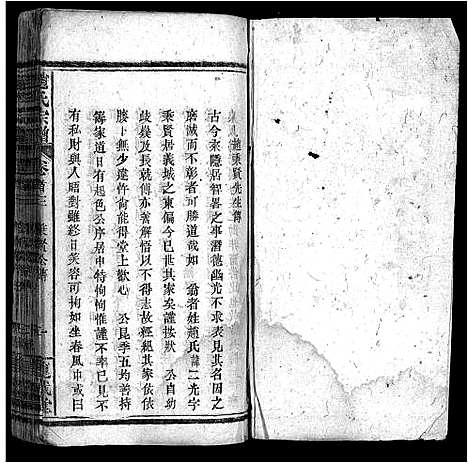 趙秉賢先生傳
古今來隱居智畧之事潛德幽光不求表見其名因之
湮滅而不彰者可勝道哉如 翁者姓趙氏諱一光字
秉賢居義城之東偏今已世其家矣謹按狀 公自幼
歧嶷及長就傅亦善解悟以不得志故經紀其家依依
膝卜無少違忤尚能得堂上歡心 公昆季五均善持
籌家道日有起色公序居中特恂恂謹不率已見不
有私財與人晤對雖終日笑容可掬如坐春風中或曰
氏宗譜